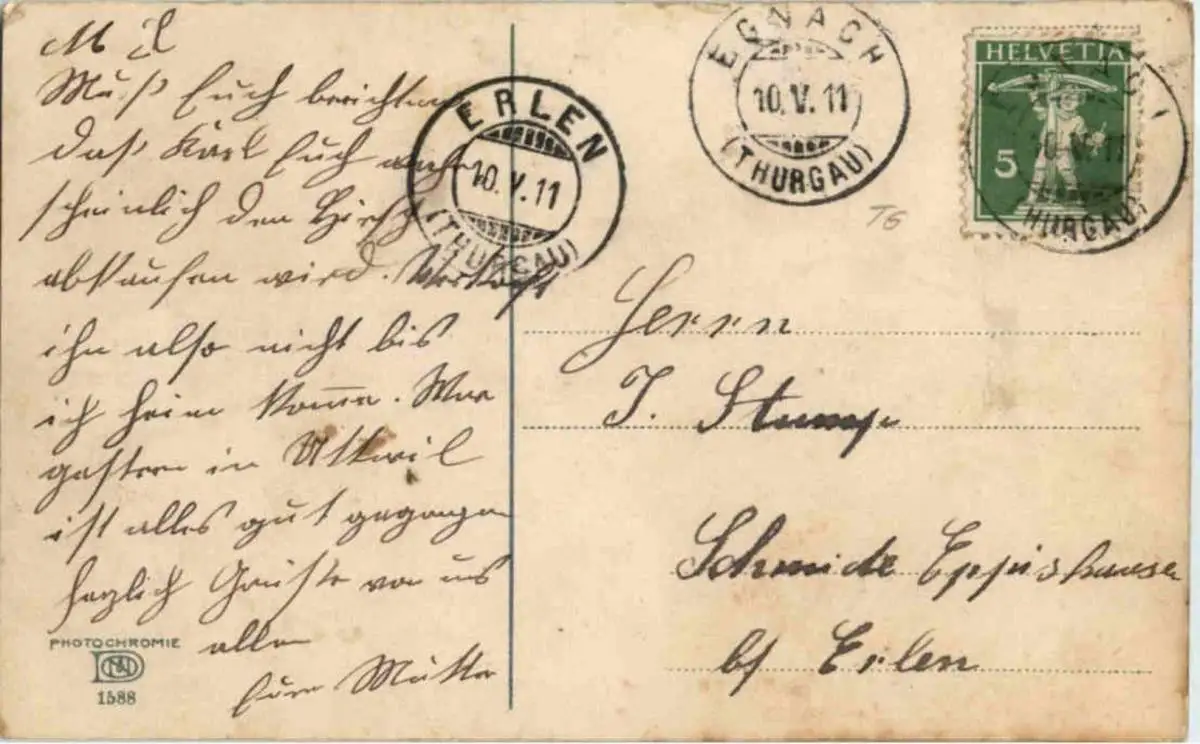 M L
Muß Euch berichten
daß Karl Euch wahr
scheinlich den Hirsch
abkaufen wird. Verkauft
ihn also nicht bis
ich heim komme. War
gestern in Uttwil
ist alles gut gegangen
herzlich Grüße von uns
allen
Eure Mutter
PHOTOCHROMIE
1588
ERLEN
10. V. 11
(THURGAU)
EGNACH
10. V. 11
(THURGAU)
TG
HELVETIA
5
10. V. 11
THURGAU)
Herrn
J. Stump
Schmide Eppishausen
bf Erlen